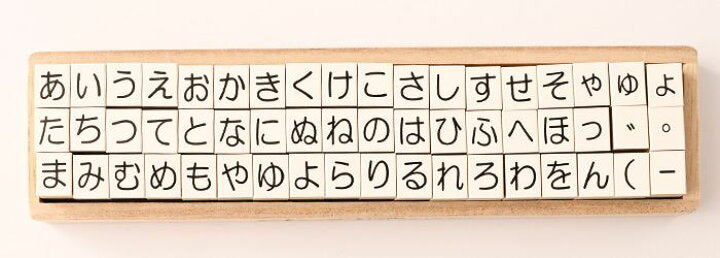 あいうえおかきくけこさしすせそゃゅょ
たちつてとなにぬねのはひふへほっ〃。
まみむめもやゆよらりるれろわをん(ー